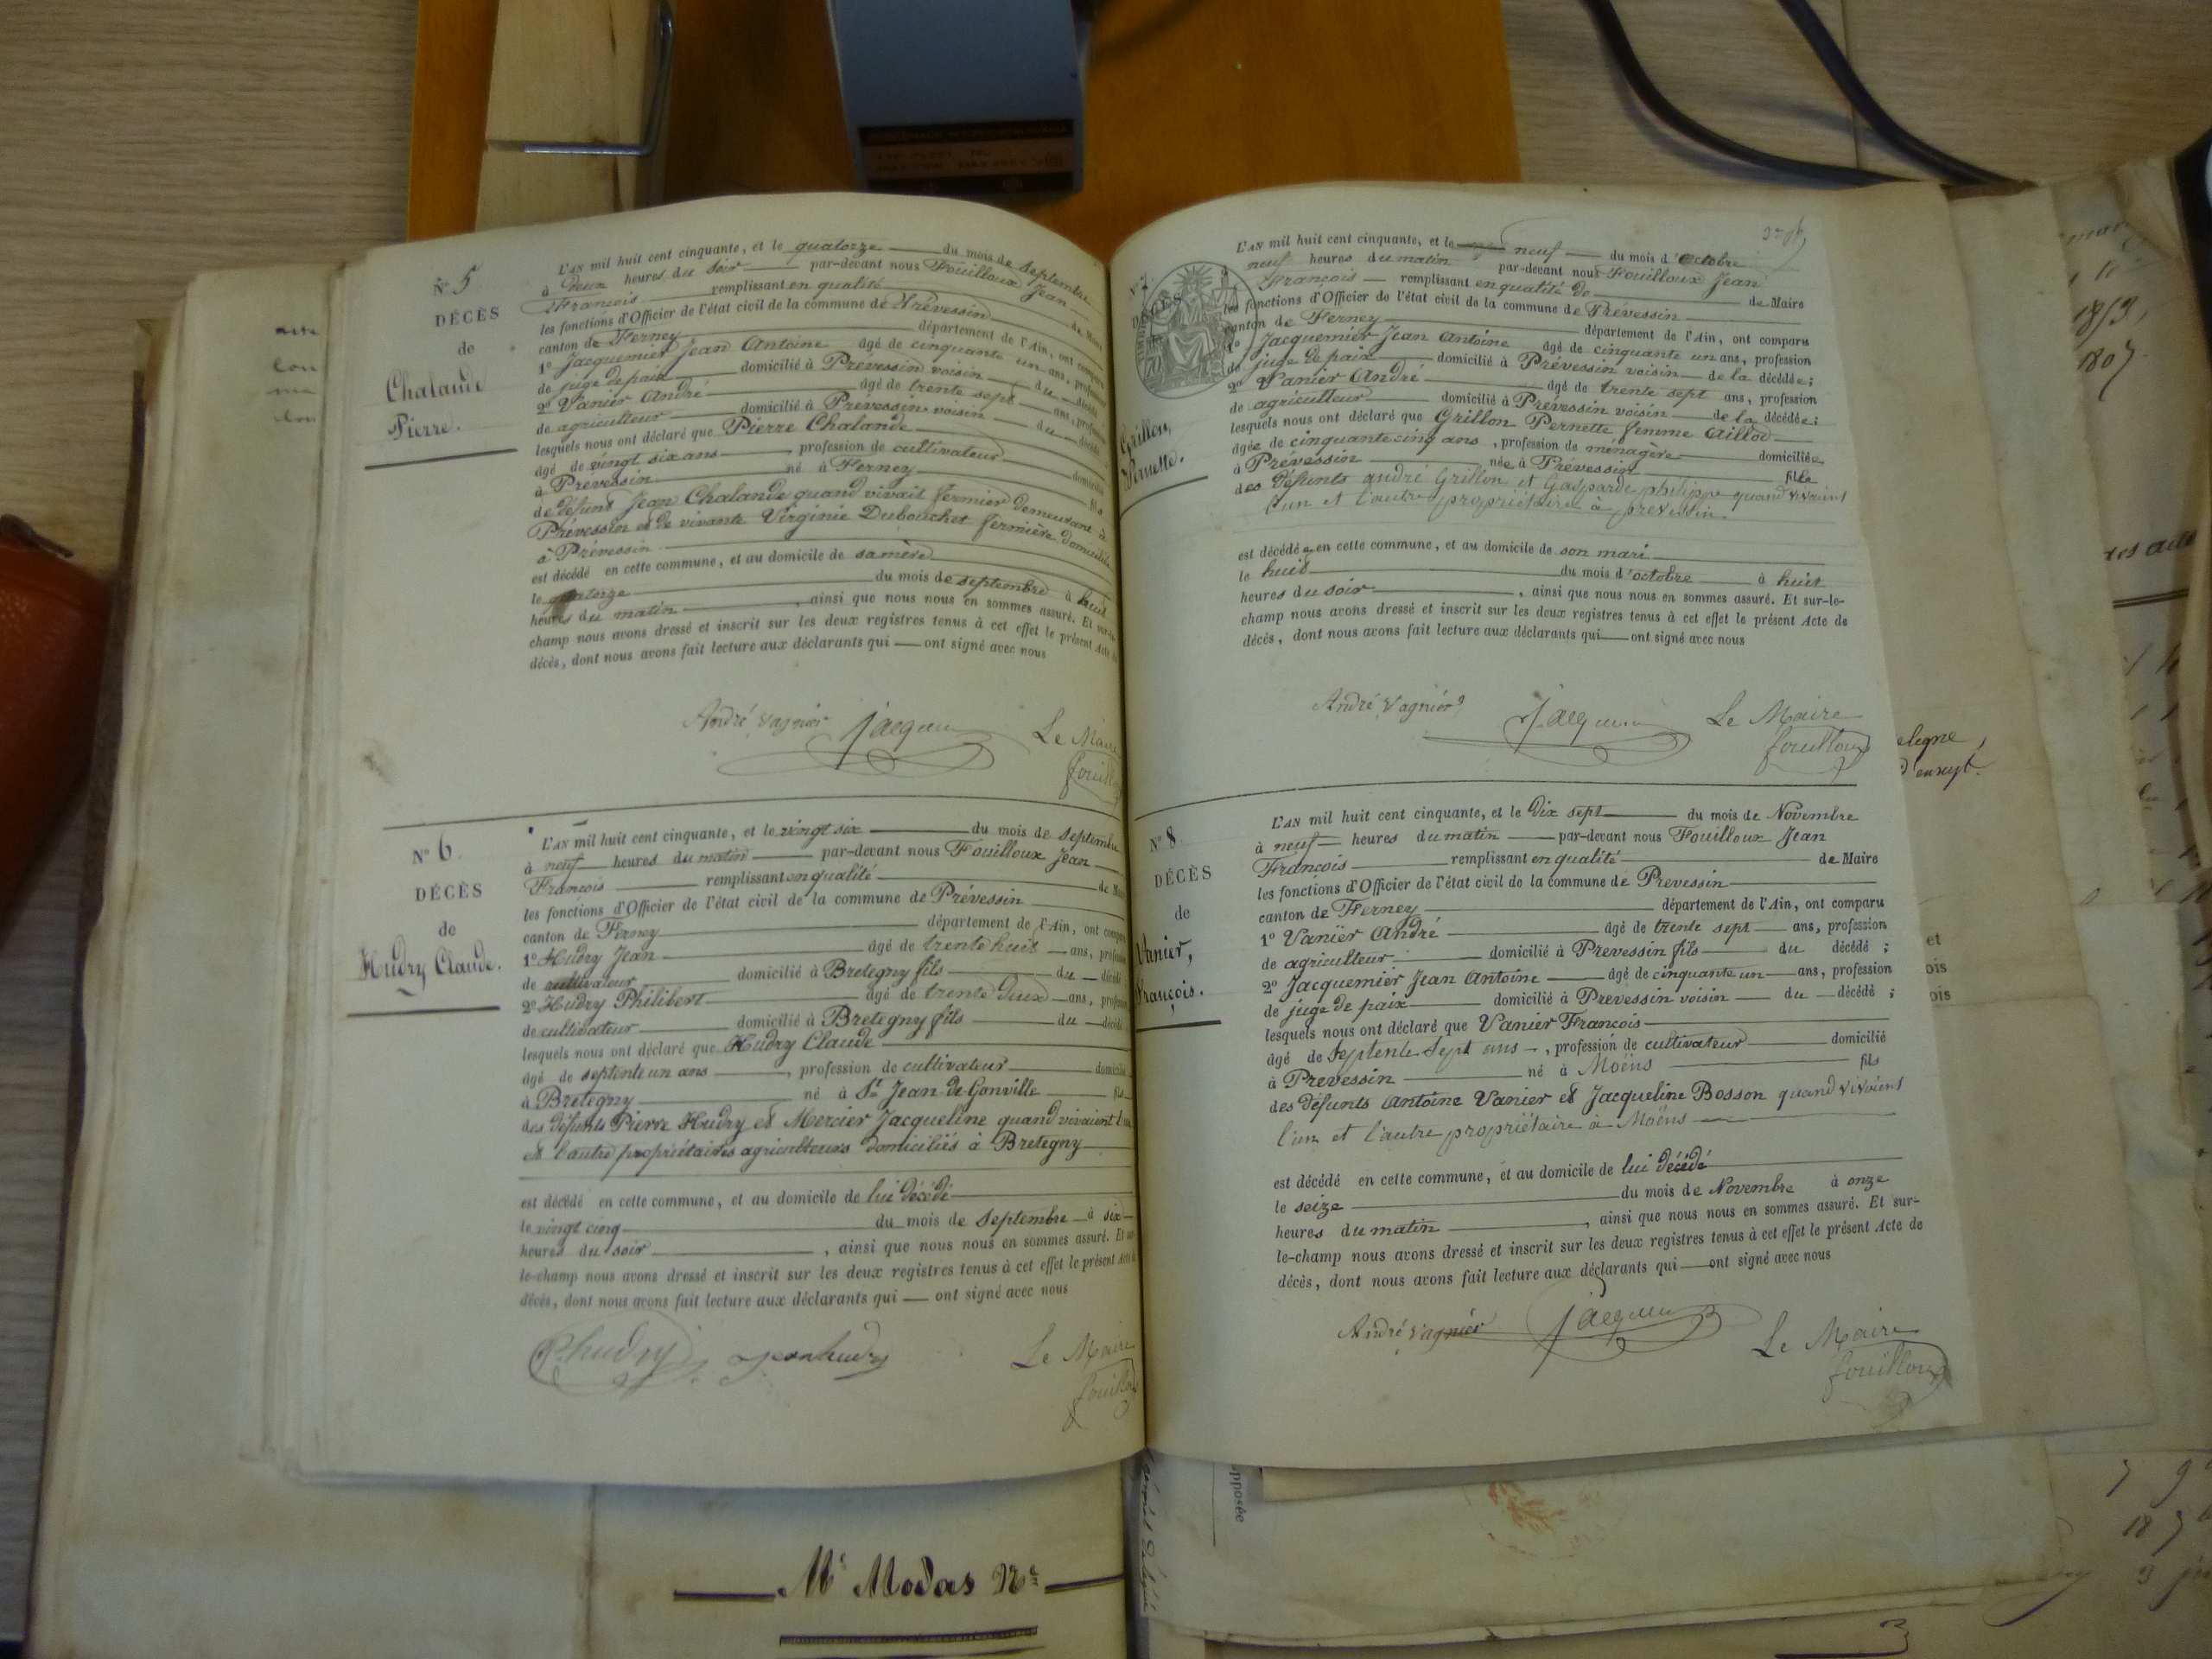 N° 5
DÉCÈS
de
Chalande
Pierre.
L'AN mil huit cent cinquante, et le quatorze du mois de Septembre
à deux heures du soir par-devant nous Fouilloux Jean
François remplissant en qualité de Maire
les fonctions d'Officier de l'état civil de la commune de Prévessin
canton de Ferney département de l'Ain, ont comparu
1° Jacquemier Jean Antoine âgé de cinquante un ans, profession
de juge de paix domicilié à Prévessin voisin du décédé
2° Vanier André âgé de trente sept ans, profession
de agriculteur domicilié à Prévessin voisin du décédé
lesquels nous ont déclaré que Pierre Chalande
âgé de vingt six ans, profession de cultivateur domicilié
à Prévessin né à Ferney fils
de défunt Jean Chalande quand vivait fermier demeurant à
Prévessin et de vivante Virginie Dubouchet fermière domiciliée
à Prévessin
est décédé en cette commune, et au domicile de sa mère
le quatorze du mois de septembre à huit
heures du matin, ainsi que nous nous en sommes assuré. Et sur-le-
champ nous avons dressé et inscrit sur les deux registres tenus à cet effet le présent Acte de
décès, dont nous avons fait lecture aux déclarants qui ont signé avec nous
André Vagnier Jacquem Le Maire
fouilloux
N° 6
DÉCÈS
de
Hudry Claude.
L'AN mil huit cent cinquante, et le vingt six du mois de Septembre
à neuf heures du matin par-devant nous Fouilloux Jean
François remplissant en qualité de Maire
les fonctions d'Officier de l'état civil de la commune de Prévessin
canton de Ferney département de l'Ain, ont comparu
1° Hudry Jean âgé de trente huit ans, profession
de cultivateur domicilié à Bretegny fils du décédé
2° Hudry Philibert âgé de trente deux ans, profession
de cultivateur domicilié à Bretegny fils du décédé
lesquels nous ont déclaré que Hudry Claude
âgé de septente un ans, profession de cultivateur domicilié
à Bretegny né à St Jean de Gonville fils
des défunts Pierre Hudry et Mercier Jacqueline quand vivaient l'un
et l'autre propriétaires agriculteurs domiciliés à Bretegny
est décédé en cette commune, et au domicile de lui décédé
le vingt cinq du mois de Septembre à six
heures du soir, ainsi que nous nous en sommes assuré. Et sur-
le-champ nous avons dressé et inscrit sur les deux registres tenus à cet effet le présent Acte de
décès, dont nous avons fait lecture aux déclarants qui ont signé avec nous
P. hudry Jean hudry Le Maire
fouilloux
N° 7
DÉCÈS
Grillon,
Pernette.
L'AN mil huit cent cinquante, et le neuf du mois d'octobre
neuf heures du matin par-devant nous Fouilloux Jean
François remplissant en qualité de de Maire
les fonctions d'Officier de l'état civil de la commune de Prévessin
canton de Ferney département de l'Ain, ont comparu
1° Jacquemier Jean Antoine âgé de cinquante un ans, profession
de juge de paix domicilié à Prévessin voisin de la décédée;
2° Vanier André âgé de trente sept ans, profession
de agriculteur domicilié à Prévessin voisin de la décédée;
lesquels nous ont déclaré que Grillon Pernette femme Aillod
âgée de cinquante cinq ans, profession de ménagère domiciliée
à Prévessin née à Prévessin fille
des défunts andré Grillon et Gasparde philippe quand vivaient
l'un et l'autre propriétaire à prevessin.
est décédée en cette commune, et au domicile de son mari
le huit du mois d'octobre à huit
heures du soir, ainsi que nous nous en sommes assuré. Et sur-le-
champ nous avons dressé et inscrit sur les deux registres tenus à cet effet le présent Acte de
décès, dont nous avons fait lecture aux déclarants qui ont signé avec nous
André Vagnier Jacquem Le Maire
fouilloux
N° 8
DÉCÈS
de
Vanier,
François.
L'AN mil huit cent cinquante, et le Dix sept du mois de Novembre
à neuf heures du matin par-devant nous Fouilloux Jean
François remplissant en qualité de Maire
les fonctions d'Officier de l'état civil de la commune de Prevessin
canton de Ferney département de l'Ain, ont comparu
1° Vanier André âgé de trente sept ans, profession
de agriculteur domicilié à Prevessin fils du décédé;
2° Jacquemier Jean Antoine âgé de cinquante un ans, profession
de juge de paix domicilié à Prevessin voisin du décédé;
lesquels nous ont déclaré que Vanier François
âgé de Septente Sept ans, profession de cultivateur domicilié
à Prevessin né à Moëns fils
des défunts Antoine Vanier et Jacqueline Bosson quand vivaient
l'un et l'autre propriétaire à Moëns
est décédé en cette commune, et au domicile de lui décédé
le seize du mois de Novembre à onze
heures du matin, ainsi que nous nous en sommes assuré. Et sur-
le-champ nous avons dressé et inscrit sur les deux registres tenus à cet effet le présent Acte de
décès, dont nous avons fait lecture aux déclarants qui ont signé avec nous
André Vagnier Jacquem Le Maire
fouilloux
Me Modas Nre